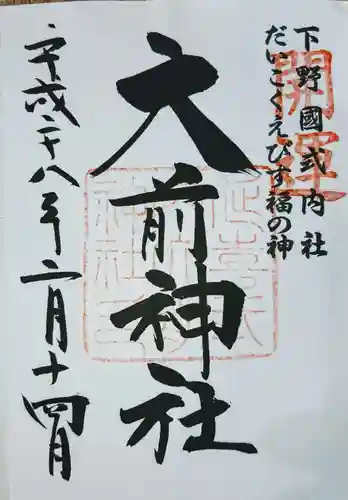 下野國式内社
だいこくえびす福の神
開運
大前神社
平成二十八年二月十四日